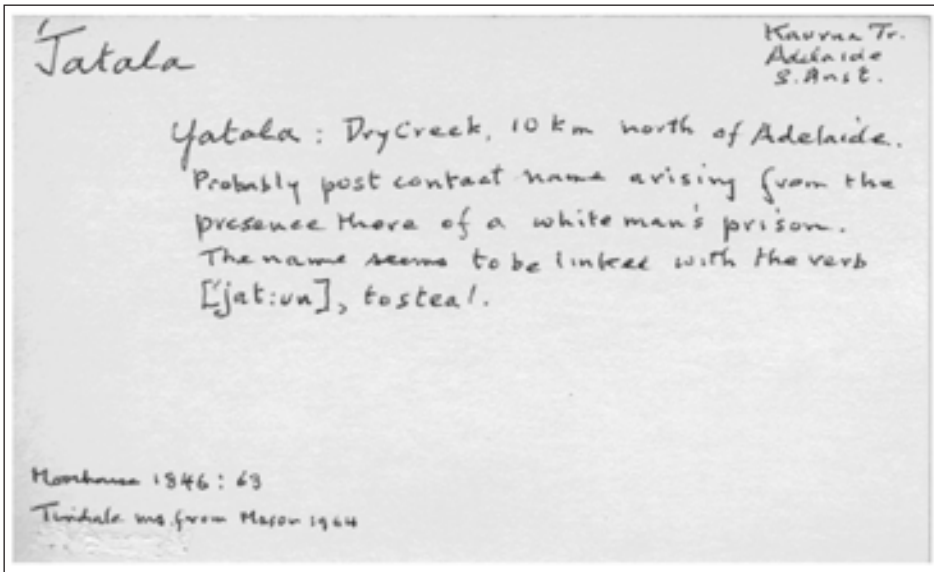 'Jatala
Kaurna Tr.
Adelaide
S. Aust.
Yatala : Dry Creek, 10 km north of Adelaide.
Probably post contact name arising from the
presence there of a white man's prison.
The name seems to be linked with the verb
['jat:un], to steal.
Moorhouse 1846 : 63
Tindale ms. from Mason 1964